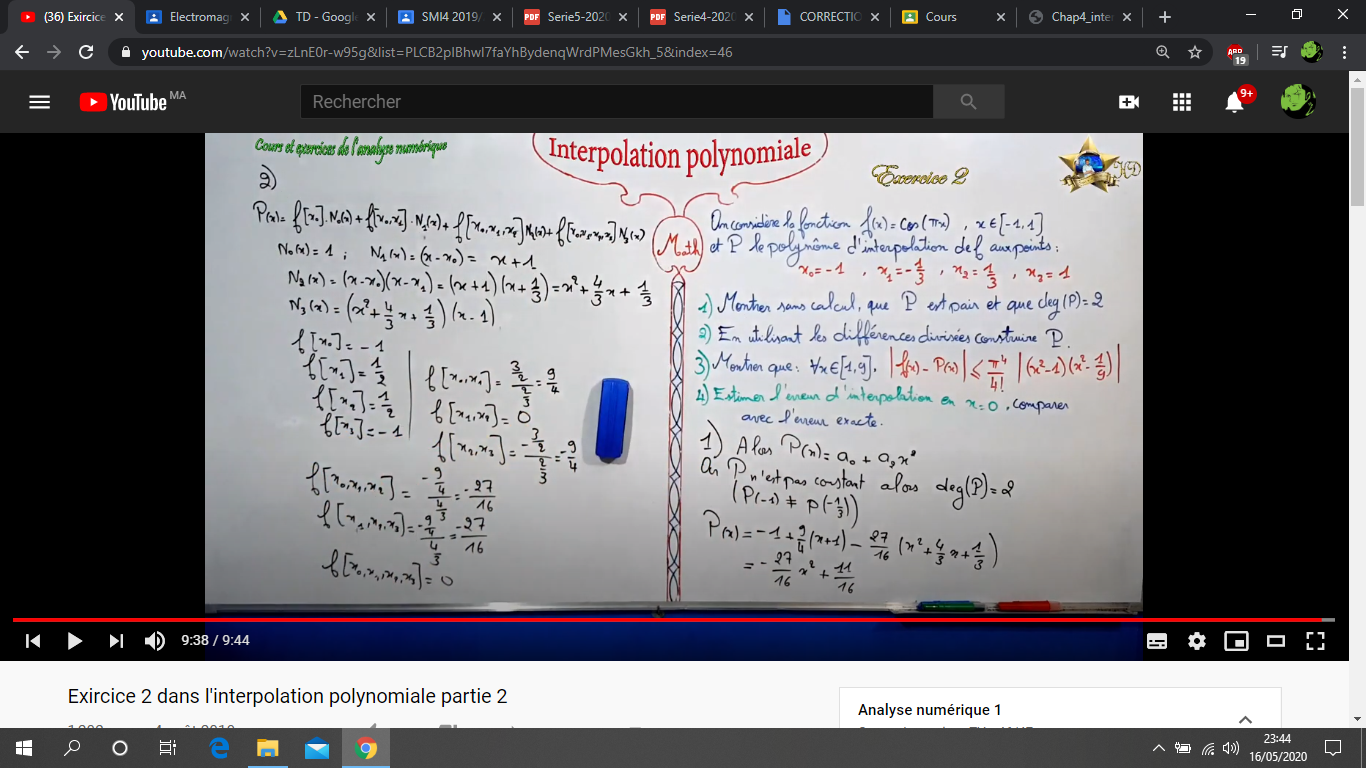 (36) Exircice
Electromag
TD - Google
SMI4 2019/
Serie5-2020
Serie4-2020
CORRECTIO
Cours
Chap4_inter
youtube.com/watch?v=zLnE0r-w95g&list=PLCB2pIBhwI7faYhBydenqWrdPMesGkh_5&index=46
ABP
19
YouTube MA
Rechercher
9+
Cours et exercices de l'analyse numérique
Interpolation polynomiale
Exercice 2
HD
Math
2)
P(x) = f[x₀].N₀(x) + f[x₀,x₁].N₁(x) + f[x₀,x₁,x₂]N₂(x) + f[x₀,x₁,x₂,x₃]N₃(x)
N₀(x) = 1 ; N₁(x) = (x-x₀) = x+1
N₂(x) = (x-x₀)(x-x₁) = (x+1)(x+1/3) = x²+4/3 x+1/3
N₃(x) = (x²+4/3 x+1/3)(x-1)
f[x₀] = -1
f[x₁] = 1/2
f[x₂] = 1/2
f[x₃] = -1
f[x₀,x₁] = 3/2 / 2/3 = 9/4
f[x₁,x₂] = 0
f[x₂,x₃] = -3/2 / 2/3 = -9/4
f[x₀,x₁,x₂] = -9/4 / 4/3 = -27/16
f[x₁,x₂,x₃] = -9/4 / 4/3 = -27/16
f[x₀,x₁,x₂,x₃] = 0
On considère la fonction f(x) = cos(πx) , x∈[-1,1]
et P le polynôme d'interpolation de f aux points :
x₀=-1 , x₁=-1/3 , x₂=1/3 , x₃=1
1) Montrer sans calcul, que P est pair et que deg(P)=2
2) En utilisant les différences divisées construire P.
3) Montrer que : ∀x∈[1,9]. |f(x)-P(x)| ≤ π⁴/4! |(x²-1)(x²-1/9)|
4) Estimer l'erreur d'interpolation en x=0, comparer
avec l'erreur exacte.
1) Alors P(x) = a₀ + a₂x²
Or P n'est pas constant alors deg(P)=2
(P(-1) ≠ P(-1/3))
P(x) = -1+9/4(x+1) - 27/16 (x²+4/3 x+1/3)
= -27/16 x² + 11/16
9:38 / 9:44
Exircice 2 dans l'interpolation polynomiale partie 2
Analyse numérique 1
23:44
16/05/2020